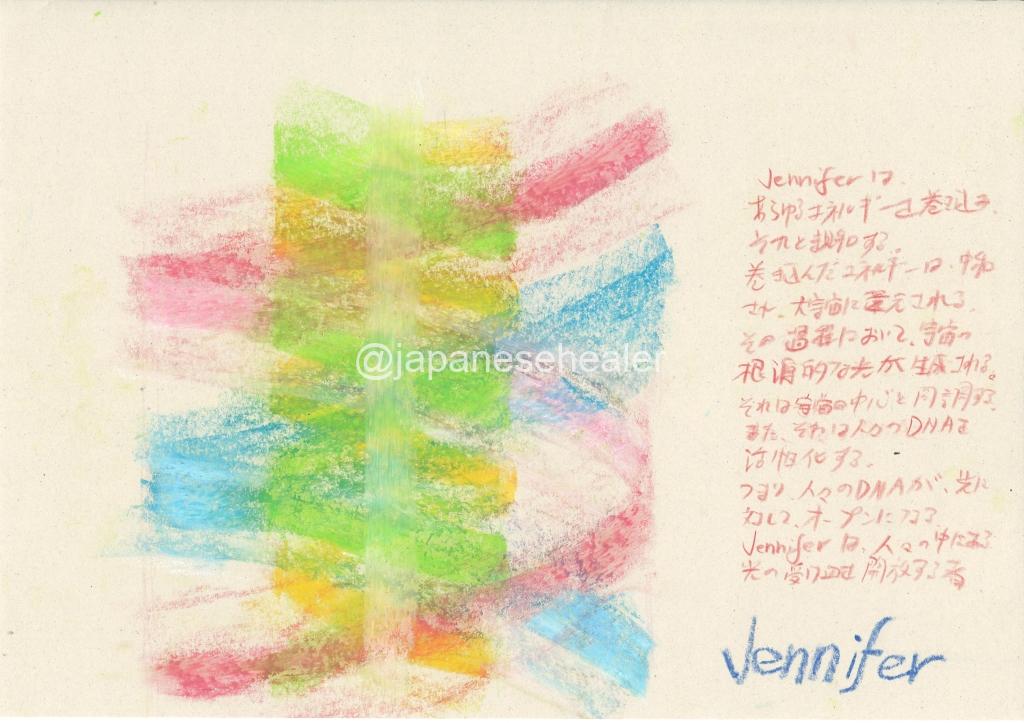 @japanesehealer
Jenniferは、
あらゆるエネルギーを巻き込み、
それと調和する。
巻き込んだエネルギーは、中和
され、大宇宙に還元される。
その過程において、宇宙の
根源的な光が生成される。
それは宇宙の中心と同調する。
また、それは人々のDNAを
活性化する。
つまり、人々のDNAが、光に
対して、オープンになる。
Jenniferは、人々の中にある
光の受け皿を開放する者
Jennifer